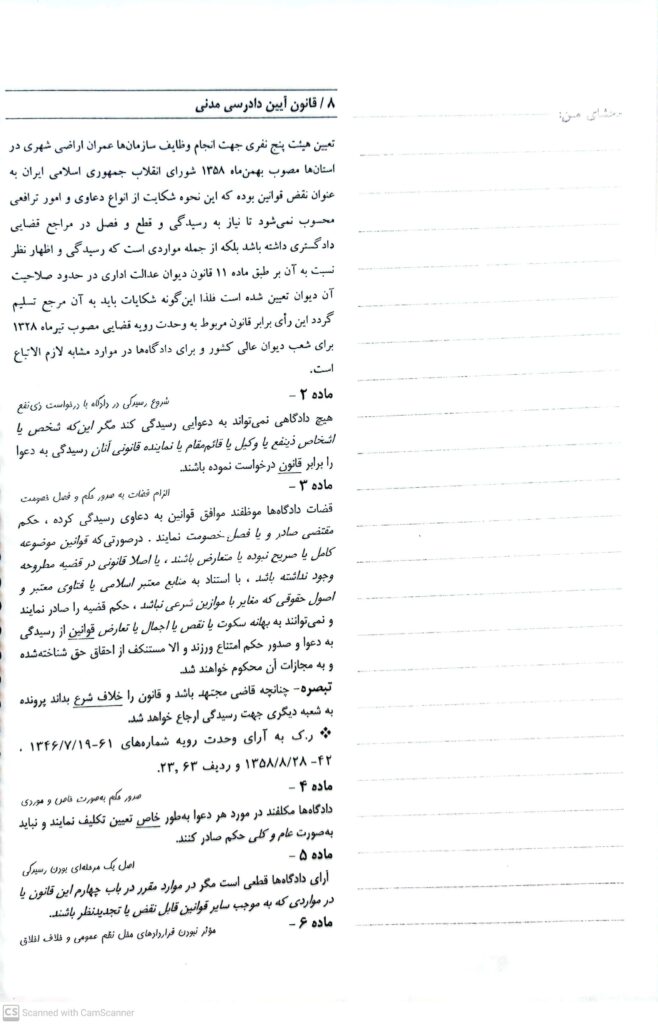 ۸ / قانون آیین دادرسی مدنی
تعیین هیئت پنج نفری جهت انجام وظایف سازمان‌ها عمران اراضی شهری در
استان‌ها مصوب بهمن‌ماه ۱۳۵۸ شورای انقلاب جمهوری اسلامی ایران به
عنوان نقض قوانین بوده که این نحوه شکایت از انواع دعاوی و امور ترافعی
محسوب نمی‌شود تا نیاز به رسیدگی و قطع و فصل در مراجع قضایی
دادگستری داشته باشد بلکه از جمله مواردی است که رسیدگی و اظهار نظر
نسبت به آن بر طبق ماده ۱۱ قانون دیوان عدالت اداری در حدود صلاحیت
آن دیوان تعیین شده است فلذا این‌گونه شکایات باید به آن مرجع تسلیم
گردد این رأی برابر قانون مربوط به وحدت رویه قضایی مصوب تیرماه ۱۳۲۸
برای شعب دیوان عالی کشور و برای دادگاه‌ها در موارد مشابه لازم الاتباع
است.
ماده ۲ –
شروع رسیدگی در دادگاه با درخواست ذی‌نفع
هیچ دادگاهی نمی‌تواند به دعوایی رسیدگی کند مگر این‌که شخص یا
اشخاص ذینفع یا وکیل یا قائم‌مقام یا نماینده قانونی آنان رسیدگی به دعوا
را برابر قانون درخواست نموده باشند.
ماده ۳ –
الزام قضات به صدور حکم و فصل خصومت
قضات دادگاه‌ها موظفند موافق قوانین به دعاوی رسیدگی کرده ، حکم
مقتضی صادر و یا فصل خصومت نمایند . درصورتی‌که قوانین موضوعه
کامل یا صریح نبوده یا متعارض باشند ، یا اصلا قانونی در قضیه مطروحه
وجود نداشته باشد ، با استناد به منابع معتبر اسلامی یا فتاوی معتبر و
اصول حقوقی که مغایر با موازین شرعی نباشد ، حکم قضیه را صادر نمایند
و نمی‌توانند به بهانه سکوت یا نقص یا اجمال یا تعارض قوانین از رسیدگی
به دعوا و صدور حکم امتناع ورزند و الا مستنکف از احقاق حق شناخته‌شده
و به مجازات آن محکوم خواهند شد.
تبصره– چنانچه قاضی مجتهد باشد و قانون را خلاف شرع بداند پرونده
به شعبه دیگری جهت رسیدگی ارجاع خواهد شد.
❖ ر.ک به آرای وحدت رویه شماره‌های ۶۱-۱۳۴۶/۷/۱۹ ،
۴۲- ۱۳۵۸/۸/۲۸ و ردیف ۶۳ ,۲۳.
ماده ۴ –
صدور حکم به‌صورت خاص و موردی
دادگاه‌ها مکلفند در مورد هر دعوا به‌طور خاص تعیین تکلیف نمایند و نباید
به‌صورت عام و کلی حکم صادر کنند.
ماده ۵ –
اصل یک مرحله‌ای بودن رسیدگی
آرای دادگاه‌ها قطعی است مگر در موارد مقرر در باب چهارم این قانون یا
در مواردی که به موجب سایر قوانین قابل نقض یا تجدیدنظر باشند.
ماده ۶ –
مؤثر نبودن قراردادهای مخل نظم عمومی و خلاف اخلاق
CS Scanned with CamScanner